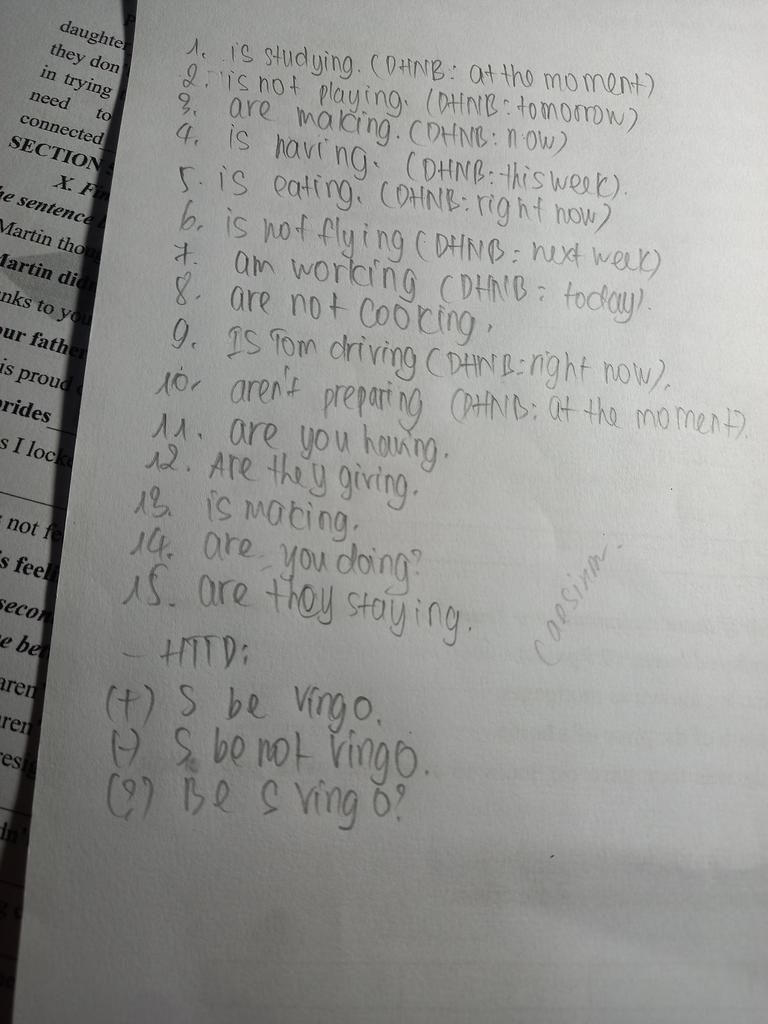 daughter
they don
in trying
need to
connected
SECTION
X. Fin
he sentence
Martin thou
Martin didn
nks to you
our father
is proud
rides
s I lock
not fe
s feel
secon
e be
aren
ren
1. is studying. (DHNB: at the moment)
2. is not playing. (DHNB: tomorrow)
3. are making. (DHNB: now)
4. is having. (DHNB: this week).
5. is eating. (DHNB: right now)
6. is not flying (DHNB: next week)
7. am working (DHNB: today).
8. are not cooking.
9. Is Tom driving (DHNB: right now).
10. aren't preparing (DHNB: at the moment).
11. are you having.
12. Are they giving.
13. is making.
14. are you doing?
15. are they staying.
- HTTD:
(+) S be Ving O.
(-) S be not Ving O.
(?) Be S Ving O?